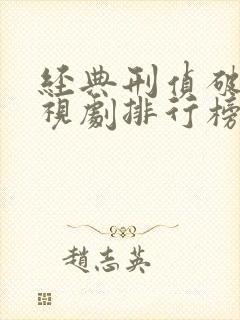 經典刑偵破
視劇排行榜
趙志英